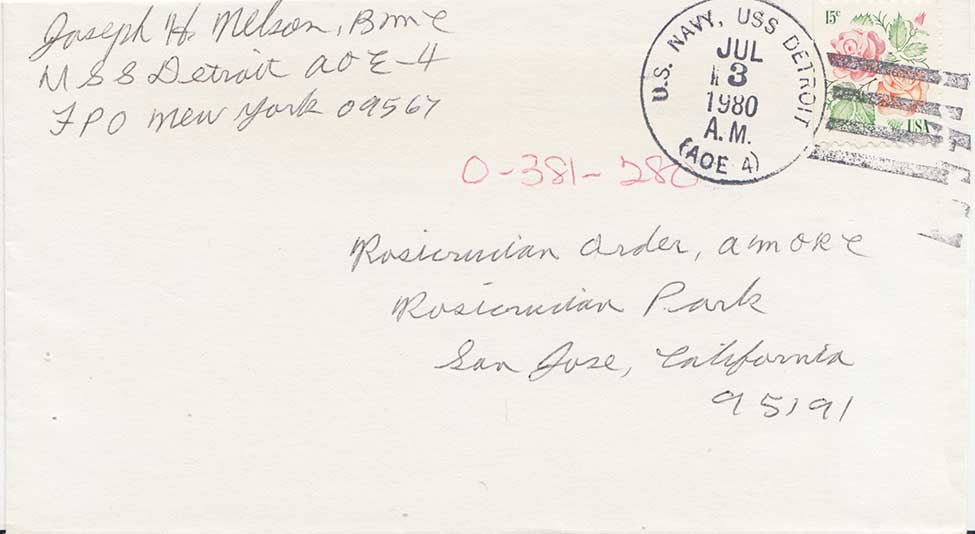 Joseph H. Nelson, BMC
USS Detroit AOE-4
FPO New York 09567
U.S. NAVY, USS DETROIT
JUL
13
1980
A.M.
(AOE 4)
15c
USA
0-381-280
Rosicrucian Order, AMORC
Rosicrucian Park
San Jose, California
95191